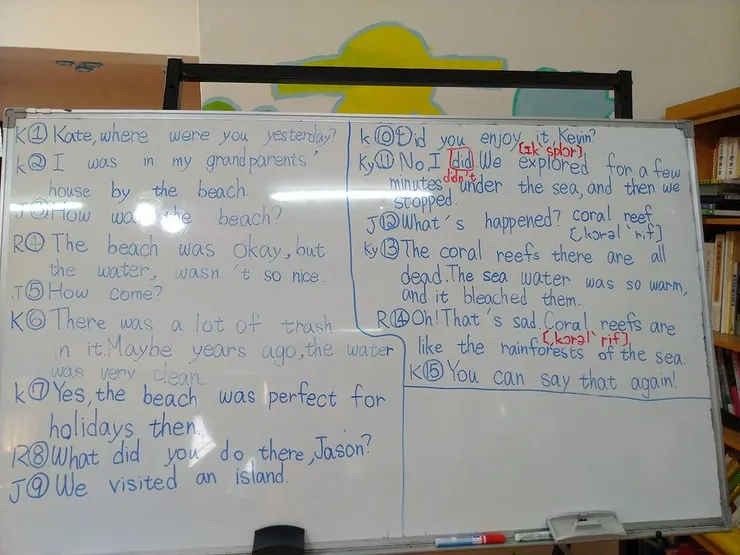 K① Kate, where were you yesterday?
K② I was in my grandparents'
house by the beach.
J③ How was the beach?
R④ The beach was okay, but
the water, wasn't so nice.
J⑤ How come?
K⑥ There was a lot of trash
in it. Maybe years ago, the water
was very clean.
K⑦ Yes, the beach was perfect for
holidays then.
R⑧ What did you do there, Jason?
J⑨ We visited an island.
K⑩ Did you enjoy it, Kevin?
[ɪk'splɔr]
Ky⑪ No, I did. We explored for a few
didn't
minutes under the sea, and then we
stopped.
J⑫ What's happened? coral reef
[ˌkɔrəl 'rif]
Ky⑬ The coral reefs there are all
dead. The sea water was so warm,
and it bleached them.
R⑭ Oh! That's sad. Coral reefs are
[ˌkɔrəl 'rif]
like the rainforests of the sea.
K⑮ You can say that again!